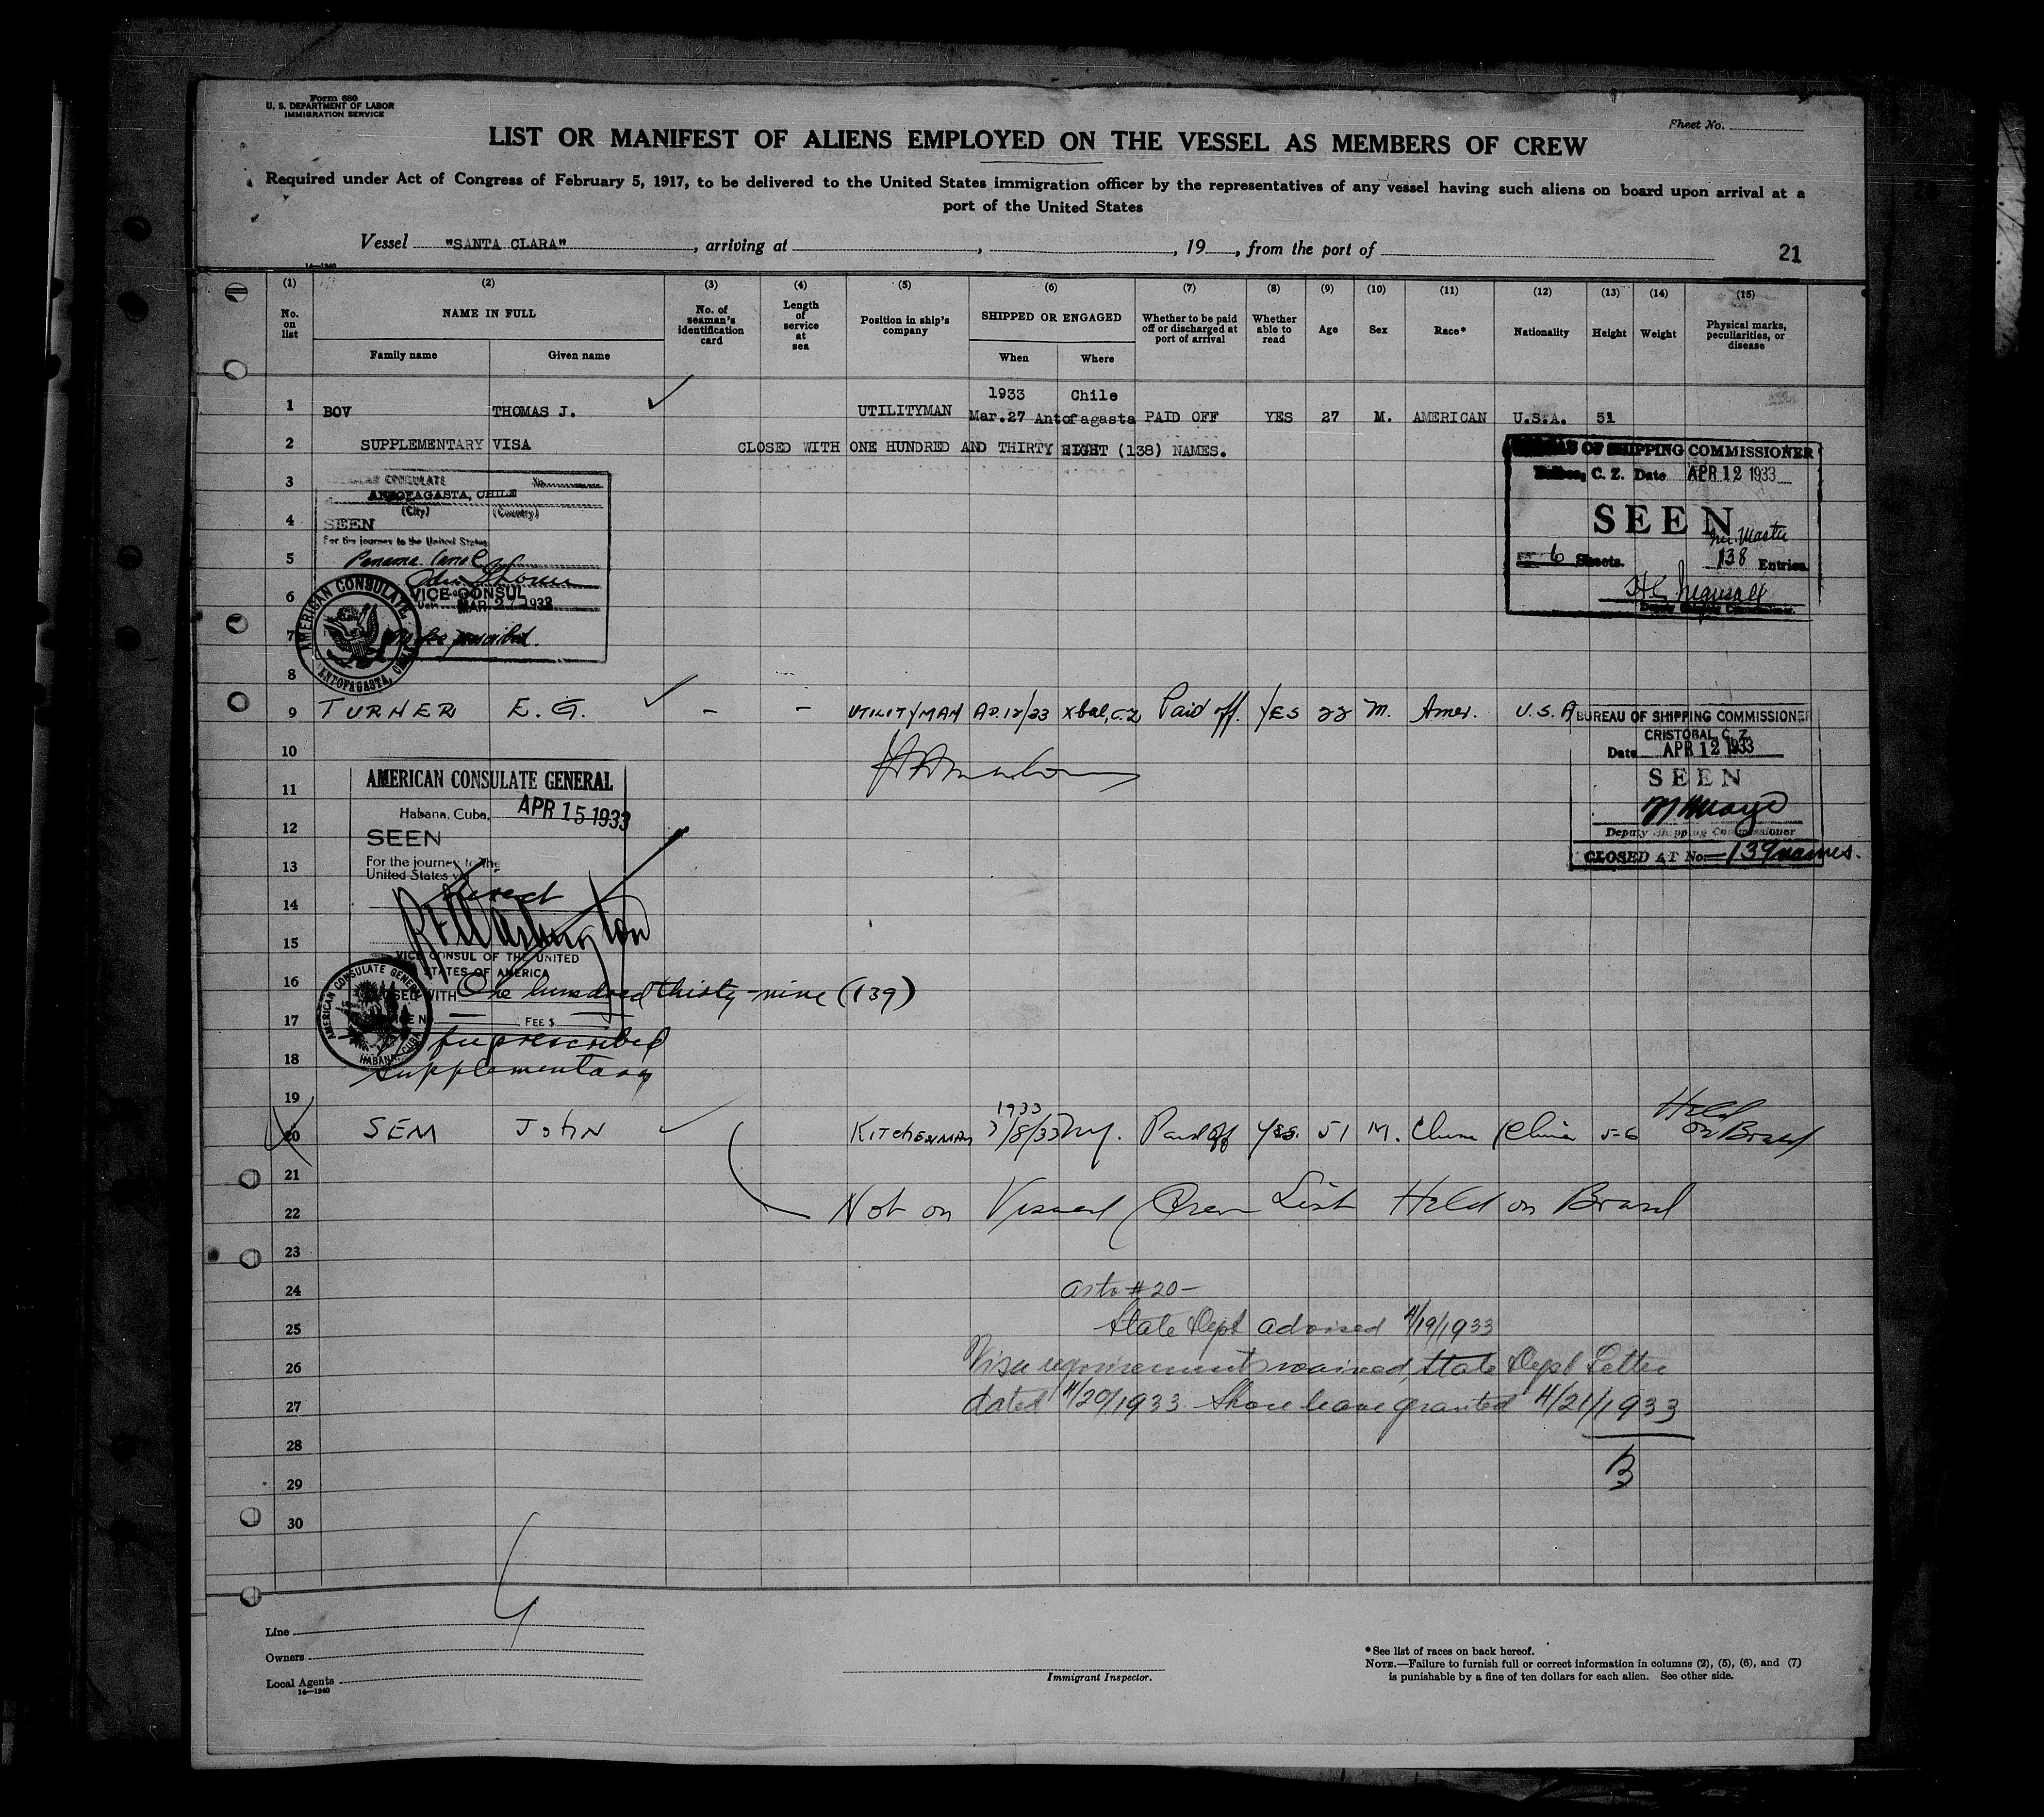 Form 680
U. S. DEPARTMENT OF LABOR
IMMIGRATION SERVICE
Sheet No.
LIST OR MANIFEST OF ALIENS EMPLOYED ON THE VESSEL AS MEMBERS OF CREW
Required under Act of Congress of February 5, 1917, to be delivered to the United States immigration officer by the representatives of any vessel having such aliens on board upon arrival at a
port of the United States
Vessel "SANTA CLARA", arriving at , , 19 , from the port of
21
14—1240
(1) (2) (3) (4) (5) (6) (7) (8) (9) (10) (11) (12) (13) (14) (15)
No. on list
NAME IN FULL
Family name Given name
No. of seaman's identification card
Length of service at sea
Position in ship's company
SHIPPED OR ENGAGED
When Where
Whether to be paid off or discharged at port of arrival
Whether able to read
Age
Sex
Race*
Nationality
Height
Weight
Physical marks, peculiarities, or disease
1933 Chile
1 BOV THOMAS J. UTILITYMAN Mar.27 Antofagasta PAID OFF YES 27 M. AMERICAN U.S.A. 51
2 SUPPLEMENTARY VISA CLOSED WITH ONE HUNDRED AND THIRTY EIGHT (138) NAMES.
3
4
5
6
7
8
CONSULATE No.
ANTOFAGASTA, CHILE
(City) (Country)
SEEN
For the journey to the United States
Panama Canal
VICE CONSUL
MAR 27 1933
No fee prescribed.
AMERICAN CONSULATE
ANTOFAGASTA, CHILE
BUREAU OF SHIPPING COMMISSIONER
Balboa, C. Z. Date APR 12 1933
SEEN
inc. Master
6 Sheets. 138 Entries
Deputy Shipping Commissioner.
9 TURNER E. G. - - UTILITYMAN AP.12/33 Xbal, C.Z. Paid off. YES 22 M. Amer. U.S.A
BUREAU OF SHIPPING COMMISSIONER
CRISTOBAL, C. Z.
Date APR 12 1933
SEEN
Deputy Shipping Commissioner
CLOSED AT No. 139 names.
10
11
12
13
14
15
16
17
18
19
AMERICAN CONSULATE GENERAL
Habana, Cuba, APR 15 1933
SEEN
For the journey to the
United States via
direct
VICE CONSUL OF THE UNITED
STATES OF AMERICA
CLOSED WITH One hundred thirty-nine (139)
FEE $
No fee prescribed
supplementary
AMERICAN CONSULATE GENERAL
HABANA, CUBA
1933
20 SEM JOHN KITCHENMAN 3/8/33 NY. Paid off Yes. 51 M. Chin China 5-6 Held on Board
21
22 Not on Visaed Crew List Held on Board
23
24 As to #20-
25 State Dept advised 4/19/1933
26 Visa requirements waived, State Dept Letter
27 dated 4/20/1933 Shore leave granted 4/21/1933
28
29
30
Line
Owners
Local Agents
14—1240
Immigrant Inspector.
*See list of races on back hereof.
NOTE.—Failure to furnish full or correct information in columns (2), (5), (6), and (7)
is punishable by a fine of ten dollars for each alien. See other side.